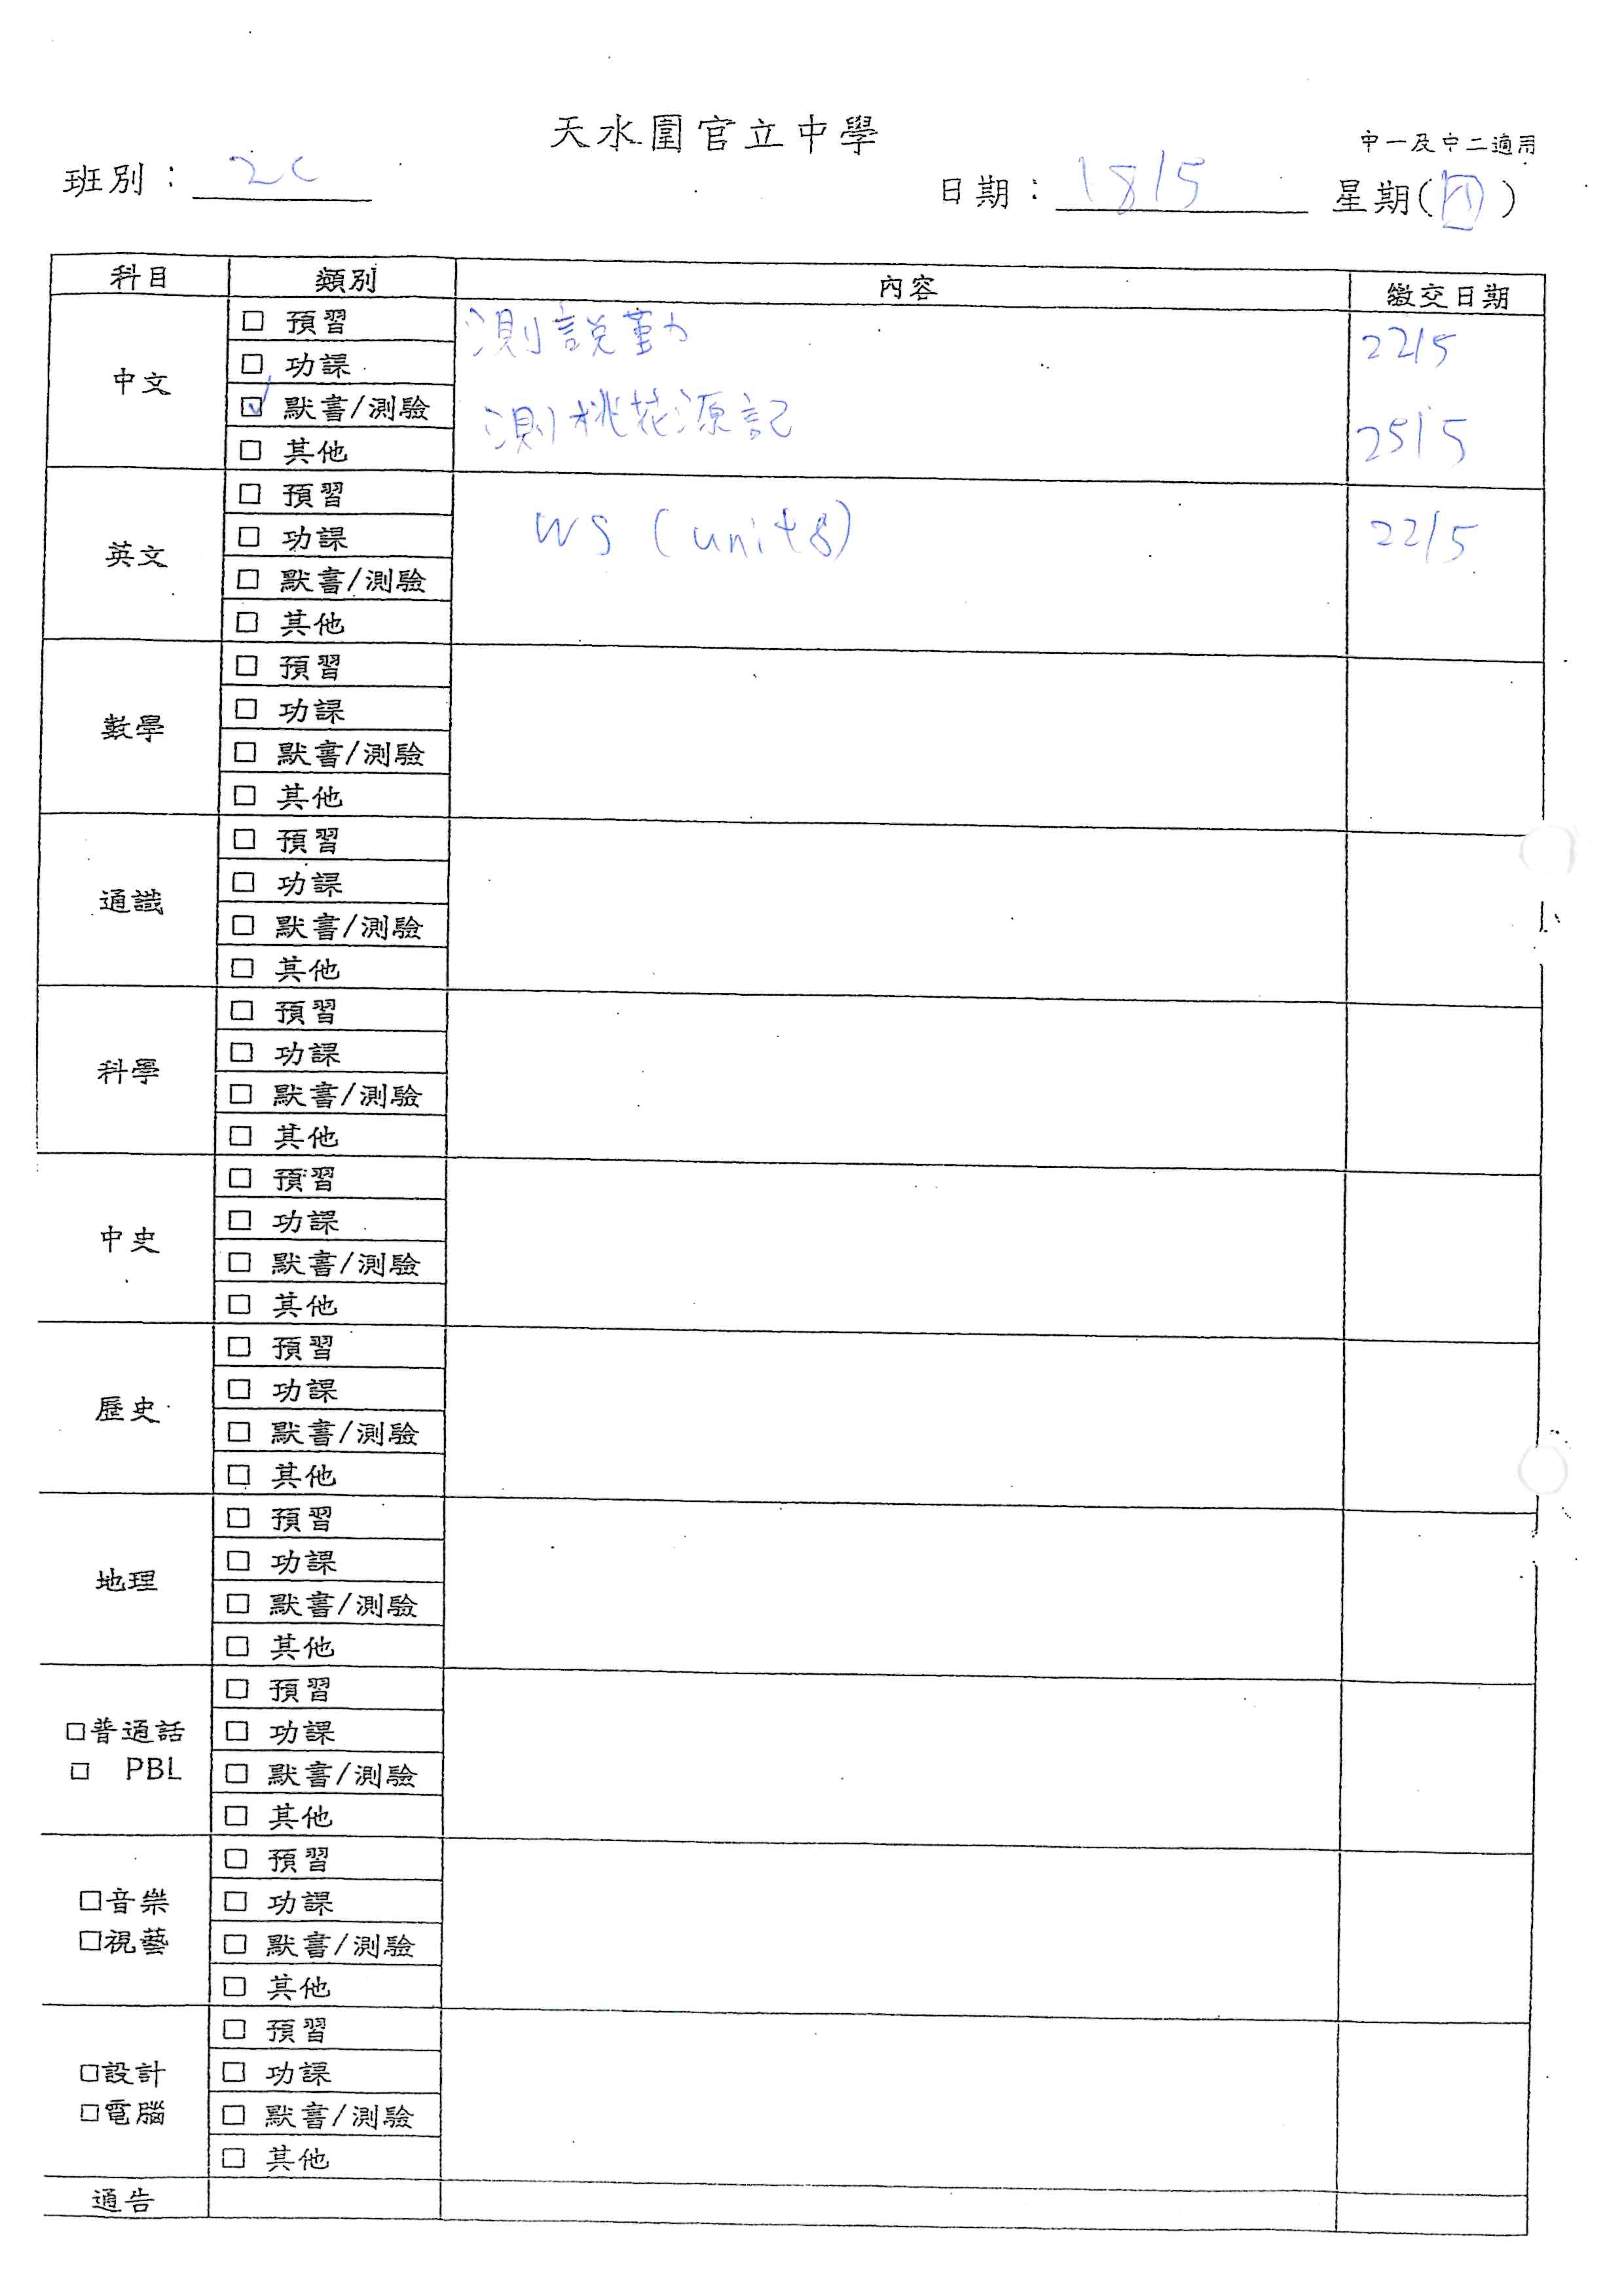 天水圍官立中學
中一及中二適用
班別：2C
日期：18/5 星期(四)
科目 類別 內容 繳交日期
中文
☐ 預習
☐ 功課
☑ 默書/測驗
☐ 其他
測說勤 22/5
測桃花源記 25/5
英文
☐ 預習
☐ 功課
☐ 默書/測驗
☐ 其他
WS (unit 8) 22/5
數學
☐ 預習
☐ 功課
☐ 默書/測驗
☐ 其他
通識
☐ 預習
☐ 功課
☐ 默書/測驗
☐ 其他
科學
☐ 預習
☐ 功課
☐ 默書/測驗
☐ 其他
中史
☐ 預習
☐ 功課
☐ 默書/測驗
☐ 其他
歷史
☐ 預習
☐ 功課
☐ 默書/測驗
☐ 其他
地理
☐ 預習
☐ 功課
☐ 默書/測驗
☐ 其他
☐普通話
☐ PBL
☐ 預習
☐ 功課
☐ 默書/測驗
☐ 其他
☐音樂
☐視藝
☐ 預習
☐ 功課
☐ 默書/測驗
☐ 其他
☐設計
☐電腦
☐ 預習
☐ 功課
☐ 默書/測驗
☐ 其他
通告